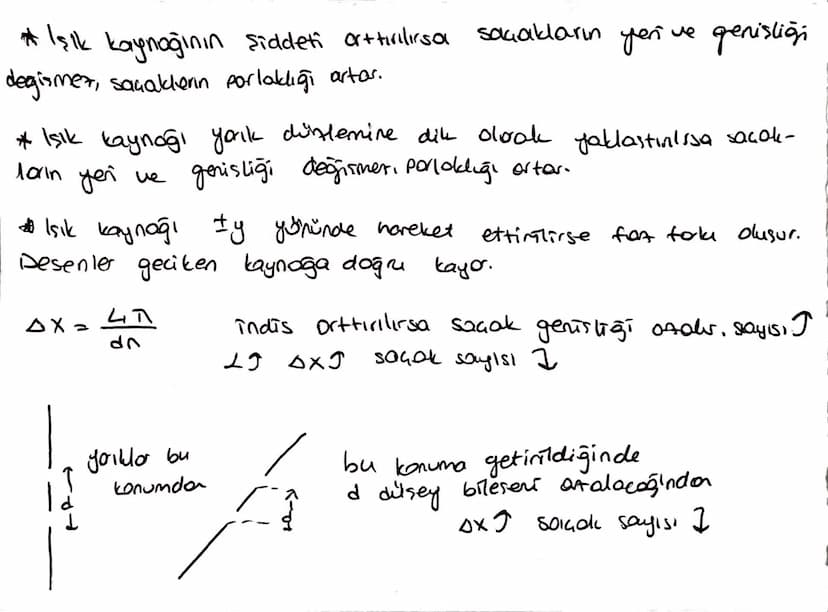 * Işık kaynağının şiddeti arttırılırsa saçakların yeri ve genişliği
değişmez, saçakların parlaklığı artar.
* Işık kaynağı yarık düzlemine dik olarak yaklaştırılırsa saçak-
ların yeri ve genişliği değişmez, parlaklığı artar.
* Işık kaynağı ±y yönünde hareket ettirilirse faz farkı oluşur.
Desenler geciken kaynağa doğru kayar.
Δx = Lλ / dn
indis arttırılırsa saçak genişliği azalır, sayısı ↑
L↑ Δx↑ saçak sayısı ↓
yarıklar bu
konumdan
d
d
bu konuma getirildiğinde
d düşey bileşeni azalacağından
Δx↑ saçak sayısı ↓